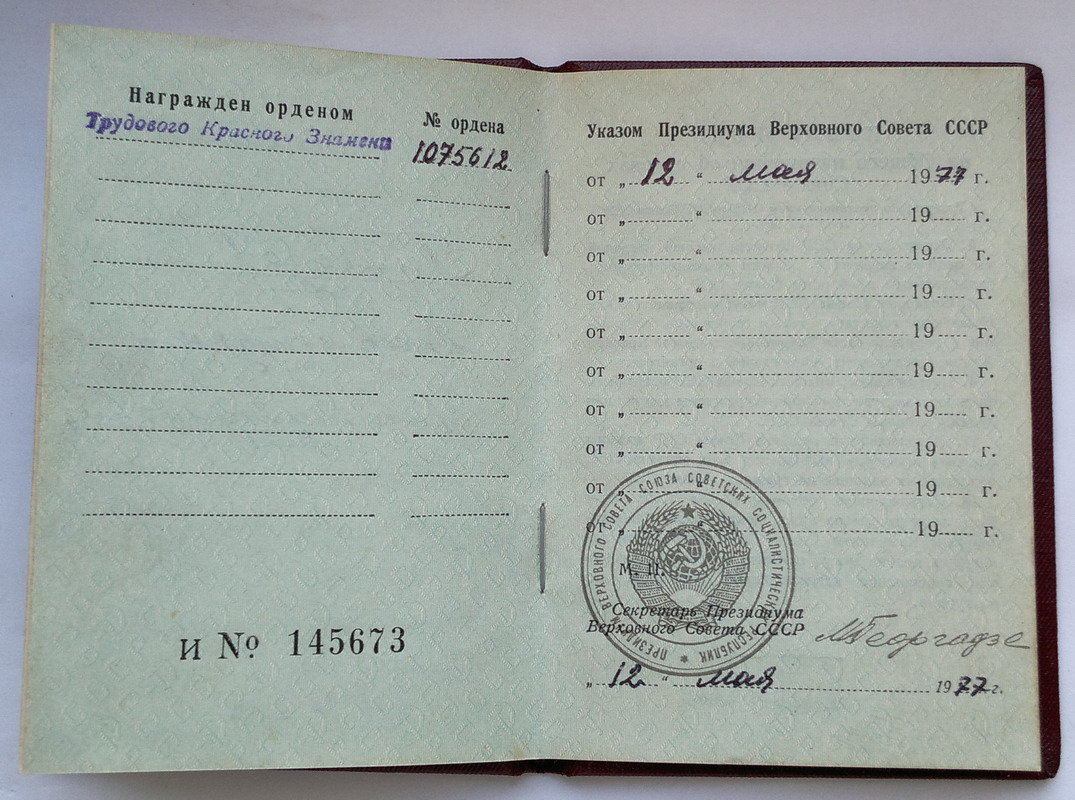 Награжден орденом
№ ордена
Трудового Красного Знамени
1075612
И № 145673
Указом Президиума Верховного Совета СССР
от „ 12 “ мая 1977 г.
от „ “ 19 г.
от „ “ 19 г.
от „ “ 19 г.
от „ “ 19 г.
от „ “ 19 г.
от „ “ 19 г.
от „ “ 19 г.
от „ “ 19 г.
от „ “ 19 г.
ПРЕЗИДИУМ ВЕРХОВНОГО СОВЕТА СОЮЗА СОВЕТСКИХ СОЦИАЛИСТИЧЕСКИХ РЕСПУБЛИК
М. П.
Секретарь Президиума
Верховного Совета СССР
МГеоргадзе
„ 12 “ мая 1977 г.